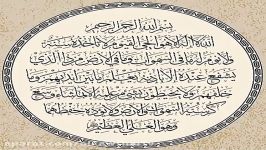 بسم الله الرحمن الرحيم
الله لا إله إلا هو الحي القيوم لا تأخذه سنة
ولا نوم له ما في السموات وما في الأرض من ذا الذي
يشفع عنده إلا بإذنه يعلم ما بين أيديهم وما
خلفهم ولا يحيطون بشيء من علمه إلا بما شاء وسع
كرسيه السموات والأرض ولا يئوده حفظهما
وهو العلي العظيم